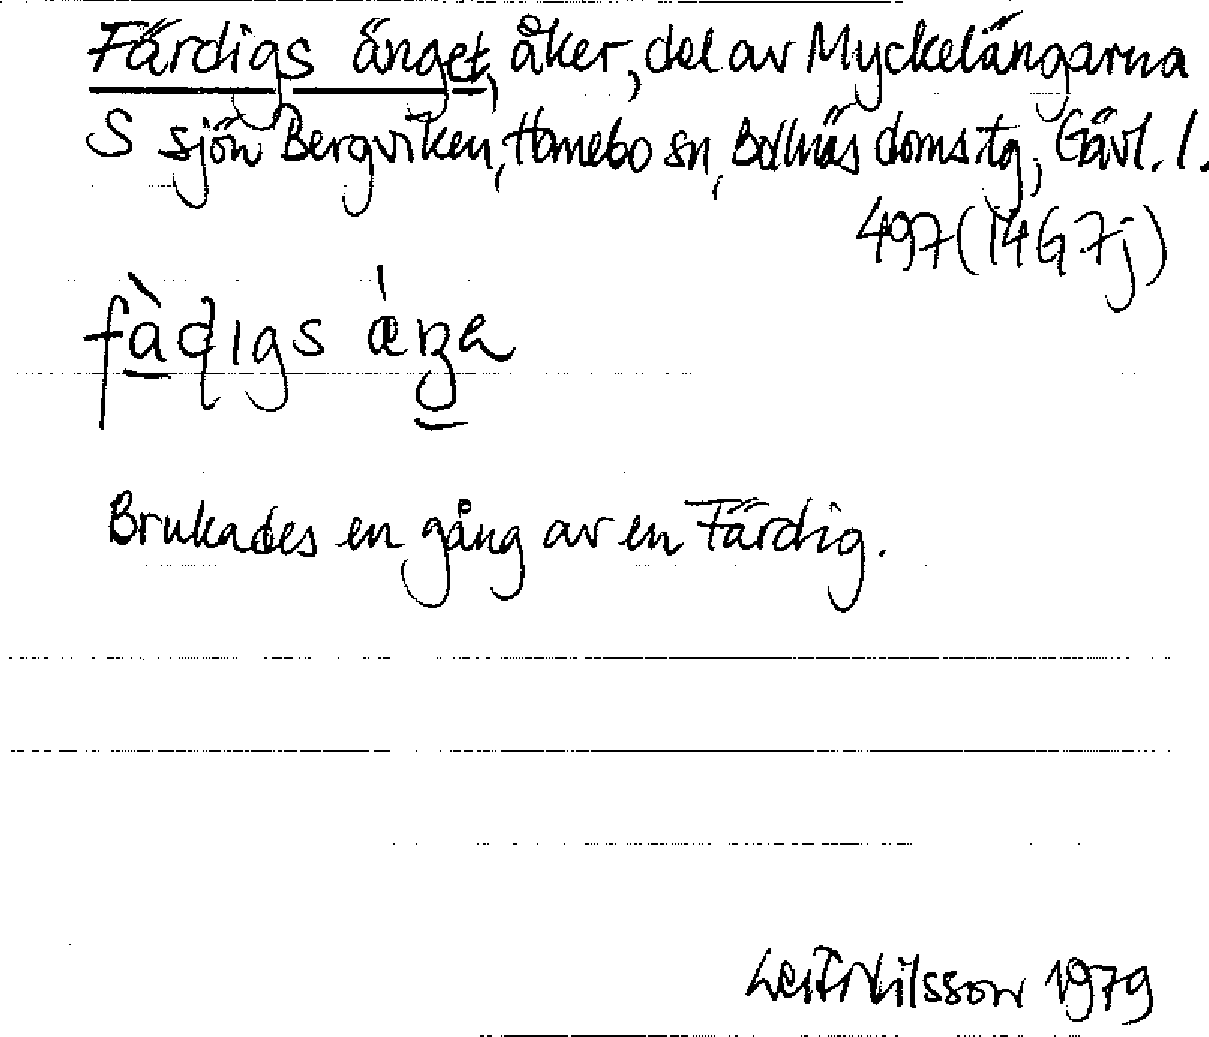 Färdigs änget, åker, del av Myckelängarna
S sjön Bergviken, Hanebo sn, Bollnäs domstg, Gävl. l.
497 (14G 7j)
Brukades en gång av en Färdig.
Leif Nilsson 1979